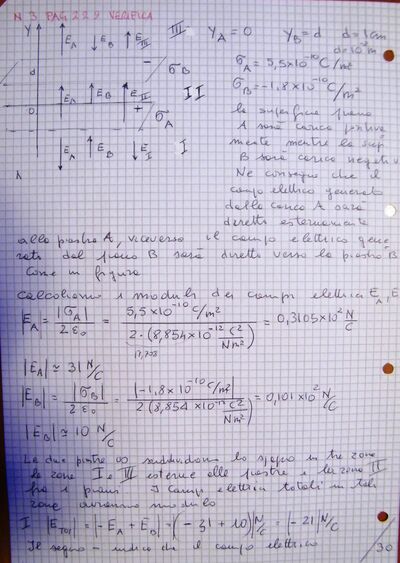 N 3 PAG 229 VERIFICA
Y
E_A E_B E_III III Y_A = 0 Y_B = d d = 1 cm
d = 10⁻² m
d σ_B σ_A = 5,5×10⁻¹⁰ C/m²
σ_B = -1,8×10⁻¹⁰ C/m²
0 E_A E_B E_II II
+ σ_A
E_A E_B E_I I
la superficie piano
A sarà carica positiva
mente mentre la sup
B sarà carica negativ
Ne consegue che il
campo elettrico generato
dalla carica A sarà
diretto esternamente
alla piastra A, viceversa il campo elettrico gene
rato dal piano B sarà diretto verso la piastra B
Come in figura
Calcoliamo i moduli dei campi elettrici E_A, E
|E_A| = |σ_A| / 2ε₀ = 5,5×10⁻¹⁰ C/m² / 2·(8,854×10⁻¹² C²/Nm²) = 0,3105×10² N/C
17,708
|E_A| ≃ 31 N/C
|E_B| = |σ_B| / 2ε₀ = |-1,8×10⁻¹⁰ C/m²| / 2(8,854×10⁻¹² C²/Nm²) = 0,101×10² N/C
|E_B| ≃ 10 N/C
Le due piastre ∞ suddividono lo spazio in tre zone
le zone I e III esterne alle piastre e la zona II
fra i piani I campi elettrici totali in tali
zone avranno modulo
I |E_TOT| = |-E_A + E_B| = |(-31 + 10)| N/C = |-21| N/C
Il segno - indica che il campo elettrico
30